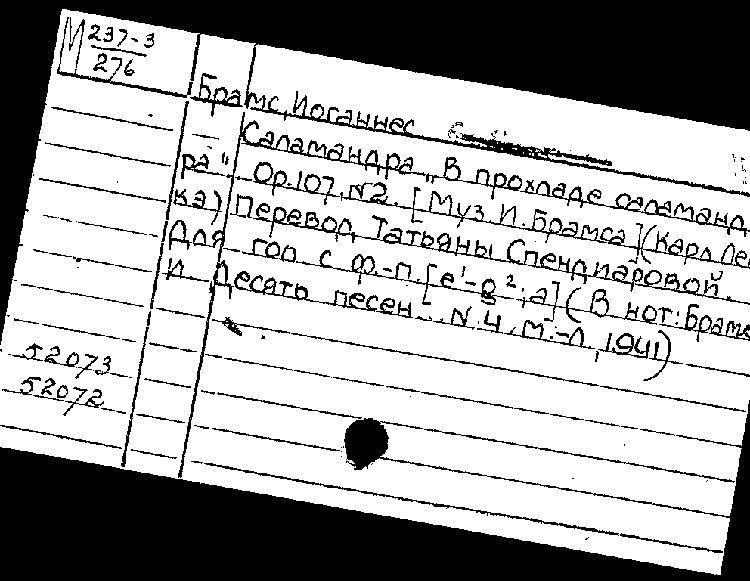 М 237-3
276
Брамс, Иоганнес
Саламандра „В прохладе саламанд
ра". Op.107, N2. [Муз. И. Брамса] (Карл Ле
ка) Перевод Татьяны Спендиаровой.
Для гол с ф.-п. [e¹-g²; a] (В нот: Брамс
И. Десять песен.. N.4. М.-Л, 1941)
52073
52072